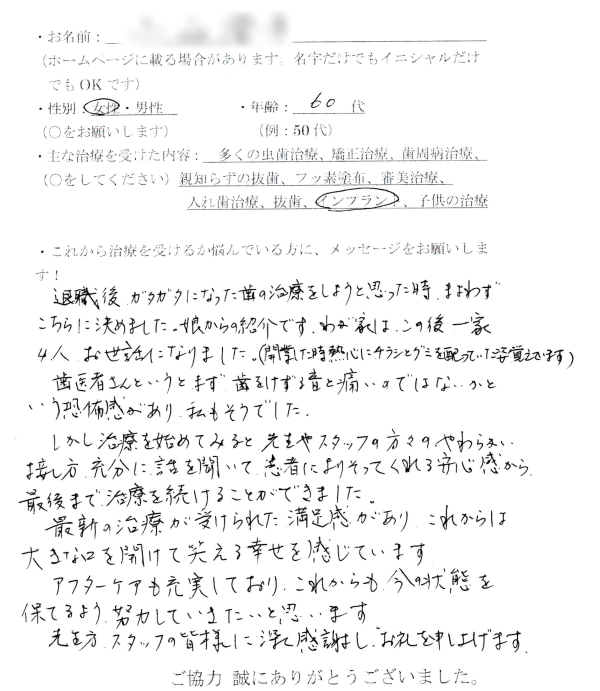 ・お名前：
（ホームページに載る場合があります。名字だけでもイニシャルだけ
でもOKです）
・性別：女性・男性　・年齢：60代
（○をお願いします）　（例：50代）
・主な治療を受けた内容：多くの虫歯治療、矯正治療、歯周病治療、
（○をしてください）親知らずの抜歯、フッ素塗布、審美治療、
入れ歯治療、抜歯、インプラント、子供の治療
・これから治療を受けるか悩んでいる方に、メッセージをお願いしま
す！
退職後 ガタガタになった歯の治療をしようと思った時 まよわず
こちらに決めました。娘からの紹介です。わが家は、この後 一家
4人 お世話になりました。（開業した時熱心にチラシとグミを配っていた姿覚えています）
歯医者さんというとまず 歯をけずる音と痛いのではないかと
いう恐怖感があり 私もそうでした。
しかし治療を始めてみると 先生やスタッフの方々のやわらかい
接し方、充分に話を聞いて、患者によりそってくれる安心感から
最後まで治療を続けることができました。
最新の治療が受けられた満足感があり、これからは
大きな口を開けて笑える幸せを感じています
アフターケアも充実しており、これからも 今の状態を
保てるよう 努力していきたいと思います
先生方、スタッフの皆様に深く感謝し、お礼を申し上げます
ご協力 誠にありがとうございました。